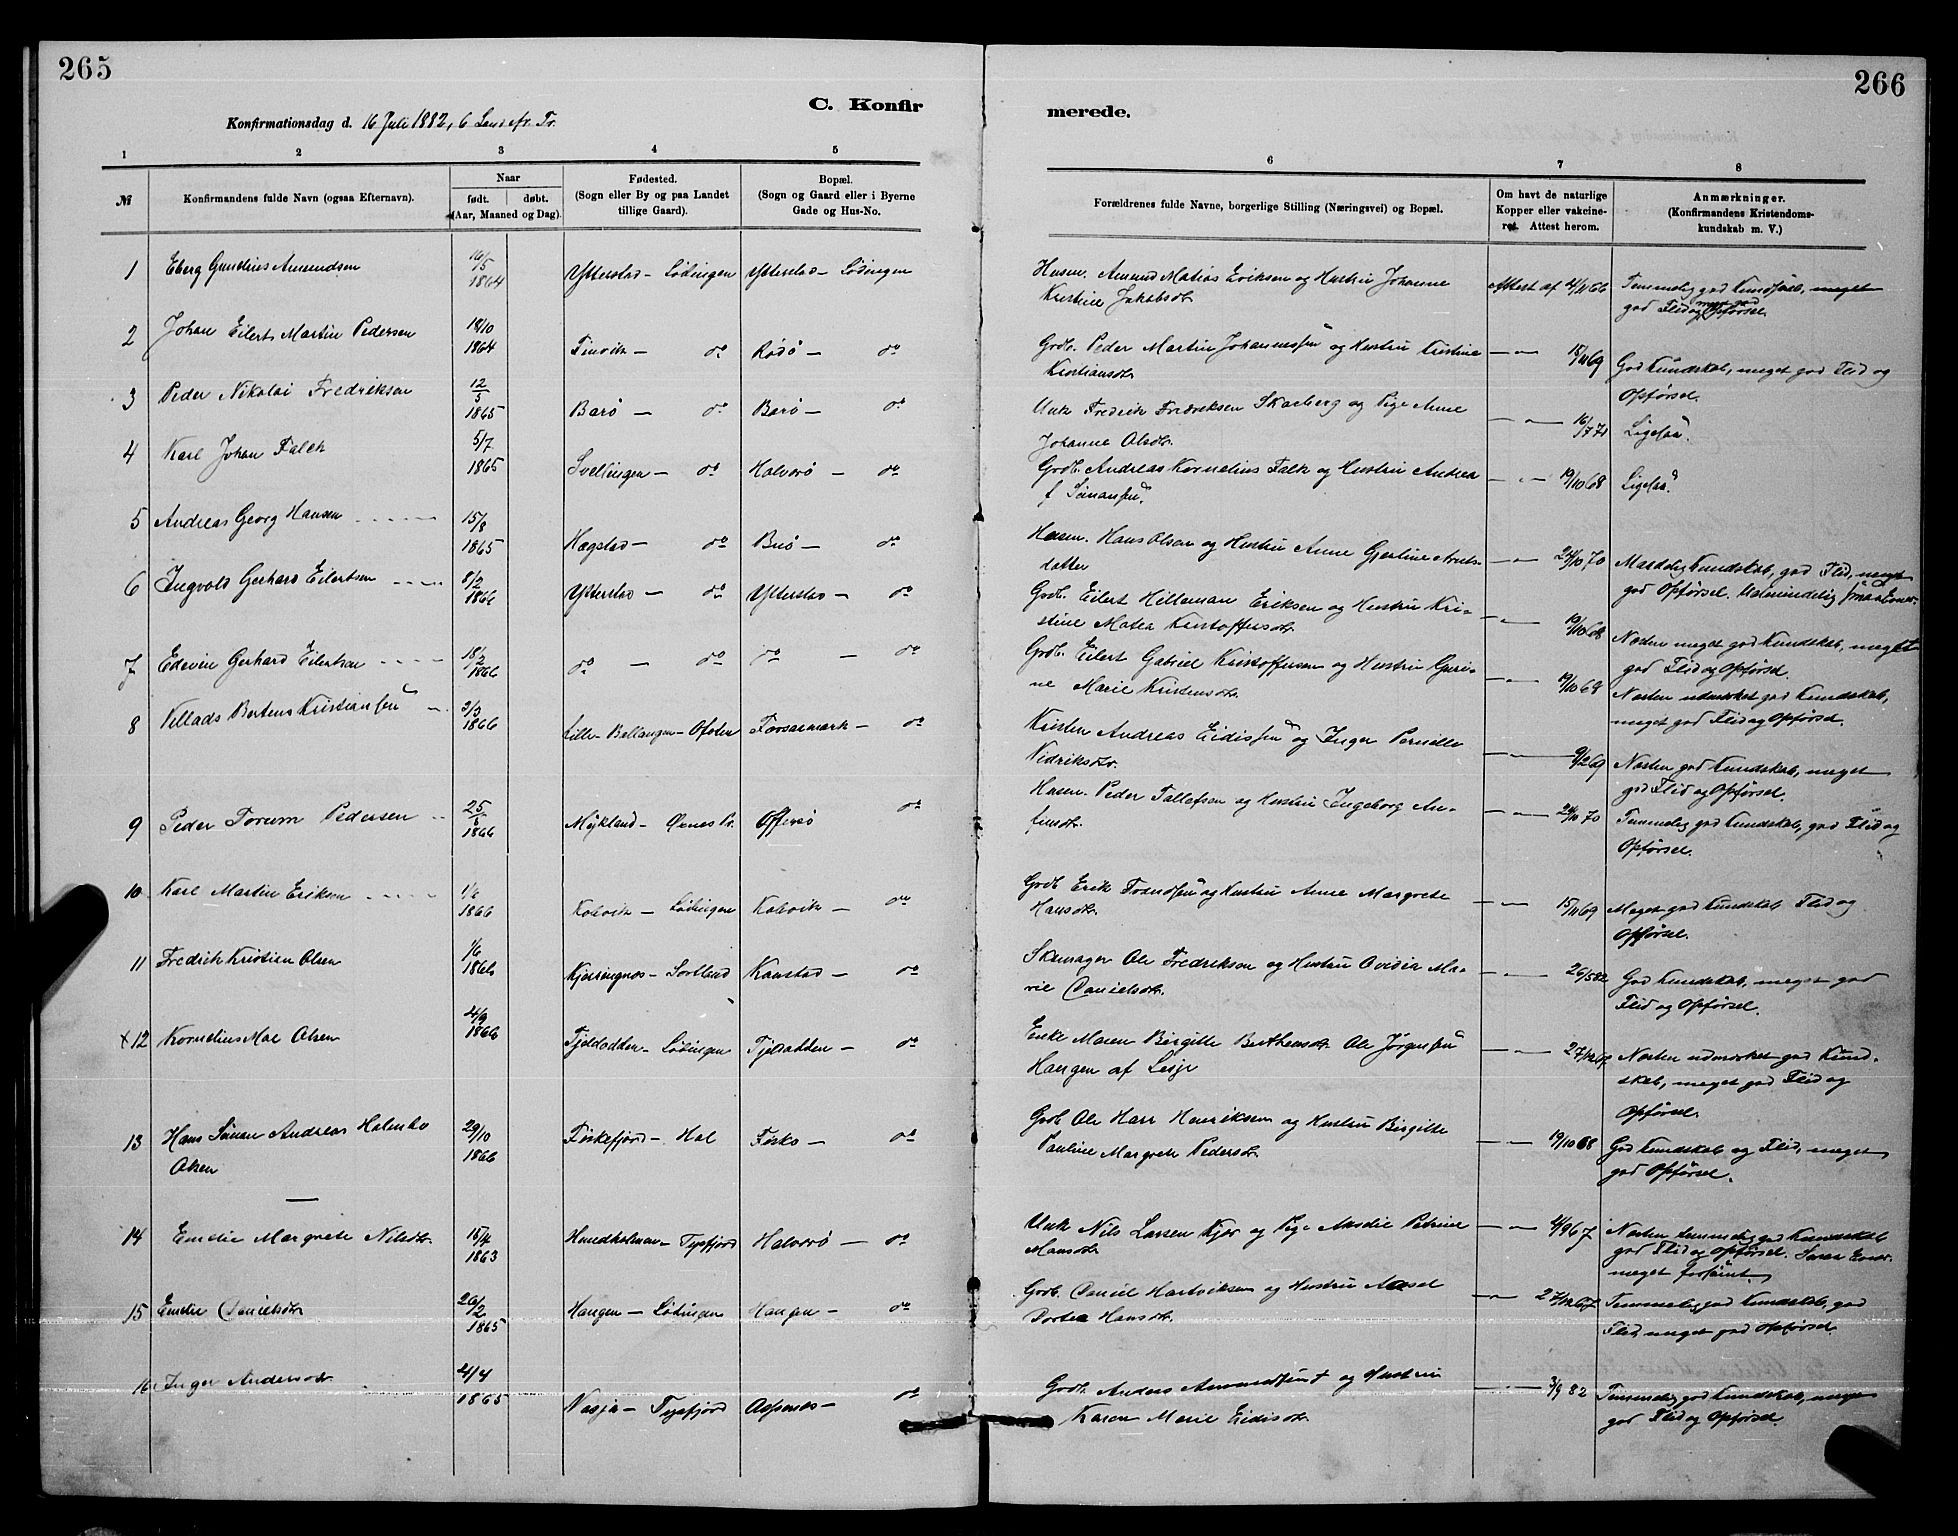 265
266
C. Konfir
merede.
Konfirmationsdag d. 16 Juli 1882, 6 Tr.
1 2 3 4 5 6 7 8
№
Konfirmandens fulde Navn (ogsaa Efternavn).
Naar
født. døbt.
(Aar, Maaned og Dag).
Fødested.
(Sogn eller By og paa Landet
tillige Gaard).
Bopæl.
(Sogn og Gaard eller i Byerne
Gade og Hus-No.
Forældrenes fulde Navne, borgerlige Stilling (Næringsvei) og Bopæl.
Om havt de naturlige
Kopper eller vakcine-
ret. Attest herom.
Anmærkninger.
(Konfirmandens Kristendoms-
kundskab m. V.)
1 Eberg Gunelius Amundsen 16/5 1864 Ytterstad - Lødingen Ytterstad - Lødingen
Husm. Amund Matias Eriksen og Hustru Johanne
Kristine Jakobsdr. Attest af 4/11 66 Temmelig god Kundskab, meget
god Flid og Opførsel.
2 Johan Eilert Martin Pedersen 18/10 1864 Finvik - do Rødø - do
Grdb. Peder Martin Johannessen og Hustru Kristine
Kristiansdr. - " - 15/11 69 God Kundskab, meget god Flid og
Opførsel.
3 Peder Nikolai Fredriksen 12/5 1865 Barø - do Barø - do
Unk. Fredrik Fredriksen Skarberg og Pige Anne
Johanne Olsdr. - " - 16/7 71 Ligesaa.
4 Karl Johan Falch 5/7 1865 Svellingen - do Halvarø - do
Grdb. Andreas Kornelius Falk og Hustru Andrea
f. Simonsen. - " - 19/10 68 Ligesaa.
5 Andreas Georg Hansen 15/8 1865 Hægstad - do Buø - do
Husm. Hans Olsen og Hustru Anne Gjertine Arnts-
datter - " - 24/10 70 Maadelig Kundskab, god Flid, meget
god Opførsel. Ualmindelig smaa Evner.
6 Ingvald Gerhard Eilertsen 8/2 1866 Ytterstad - do Ytterstad - do
Grdb. Eilert Hilleman Eriksen og Hustru Kri-
stine Matea Kristoffersdr. - " - 19/10 68 Næsten meget god Kundskab, meget
god Flid og Opførsel.
7 Edevin Gerhard Eilertsen 18/2 1866 do - do do - do
Grdb. Eilert Gabriel Kristoffersen og Hustru Guri-
ne Marie Kristensdr. - " - 19/10 69 Næsten udmærket god Kundskab,
meget god Flid og Opførsel.
8 Villads Bertens Kristiansen 3/3 1866 Lille-Ballangen - Ofoten Forsaemark - do
Kristen Andreas Eidissen og Inger Pernille
Nidriksdr. - " - 9/2 69 Næsten god Kundskab, meget
god Flid og Opførsel.
9 Peder Torum Pedersen 25/5 1866 Mykland - Øxnes Pr. Offersø do
Husm. Peder Tallefsen og Hustru Ingeborg An-
finsdr. - " - 24/10 70 Temmelig god Kundskab, god Flid og
Opførsel.
10 Karl Martin Eriksen 1/6 1866 Kobvik - Lødingen Kobvik - do
Grdb. Erik Trondsen og Hustru Anne Margrete
Hansdr. - " - 15/11 69 Meget god Kundskab Flid og
Opførsel.
11 Fredrik Kristian Olsen 1/6 1866 Kjerringnes - Sortland Kanstad - do
Skomager Ole Fredriksen og Hustru Ovidia Ma-
rie Danielsdr. - " - 26/5 82 God Kundskab, meget god
Flid og Opførsel.
+12 Kornelius Moe Olsen 4/9 1866 Tjeldodden - Lødingen Tjeldodden - do
Enke Maren Birgitte Berthensdr. Ole Jørgensen
Haugen af Lesje - " - 27/12 67 Næsten udmærket god Kund-
skab, meget god Flid og
Opførsel.
13 Hans Simon Andreas Holmbo
Olsen 29/10 1866 Fiskefjord - Hol Fisko - do
Grdb. Ole Harr Henriksen og Hustru Birgitte
Pauline Margrete Pedersdr. - " - 19/10 68 God Kundskab og Flid, meget
god Opførsel.
14 Emelie Margrete Nilsdr. 15/4 1863 Hundholmen - Tysfjord Halvarø - do
Unk. Nils Larsen Kjær og Pige Petrine
Monsdr. - " - 4/9 67 Næsten temmelig god Kundskab
god Flid og Opførsel. Smaa Evner.
meget forsømt
15 Emelie Danielsdr. 26/2 1865 Haugen - Lødingen Haugen - do
Grdb. Daniel Hartviksen og Hustru
Dortea Hansdr. - " - 27/12 67 Temmelig god Kundskab, god
Flid meget god Opførsel.
16 Inger Andersdr. 4/4 1865 Tysfjord - do
Grdb. Anders Amundsen + og Hustru
Karen Marie Eidisdr. - " - 3/9 82 Temmelig god Kundskab, meget
god Flid og Opførsel.